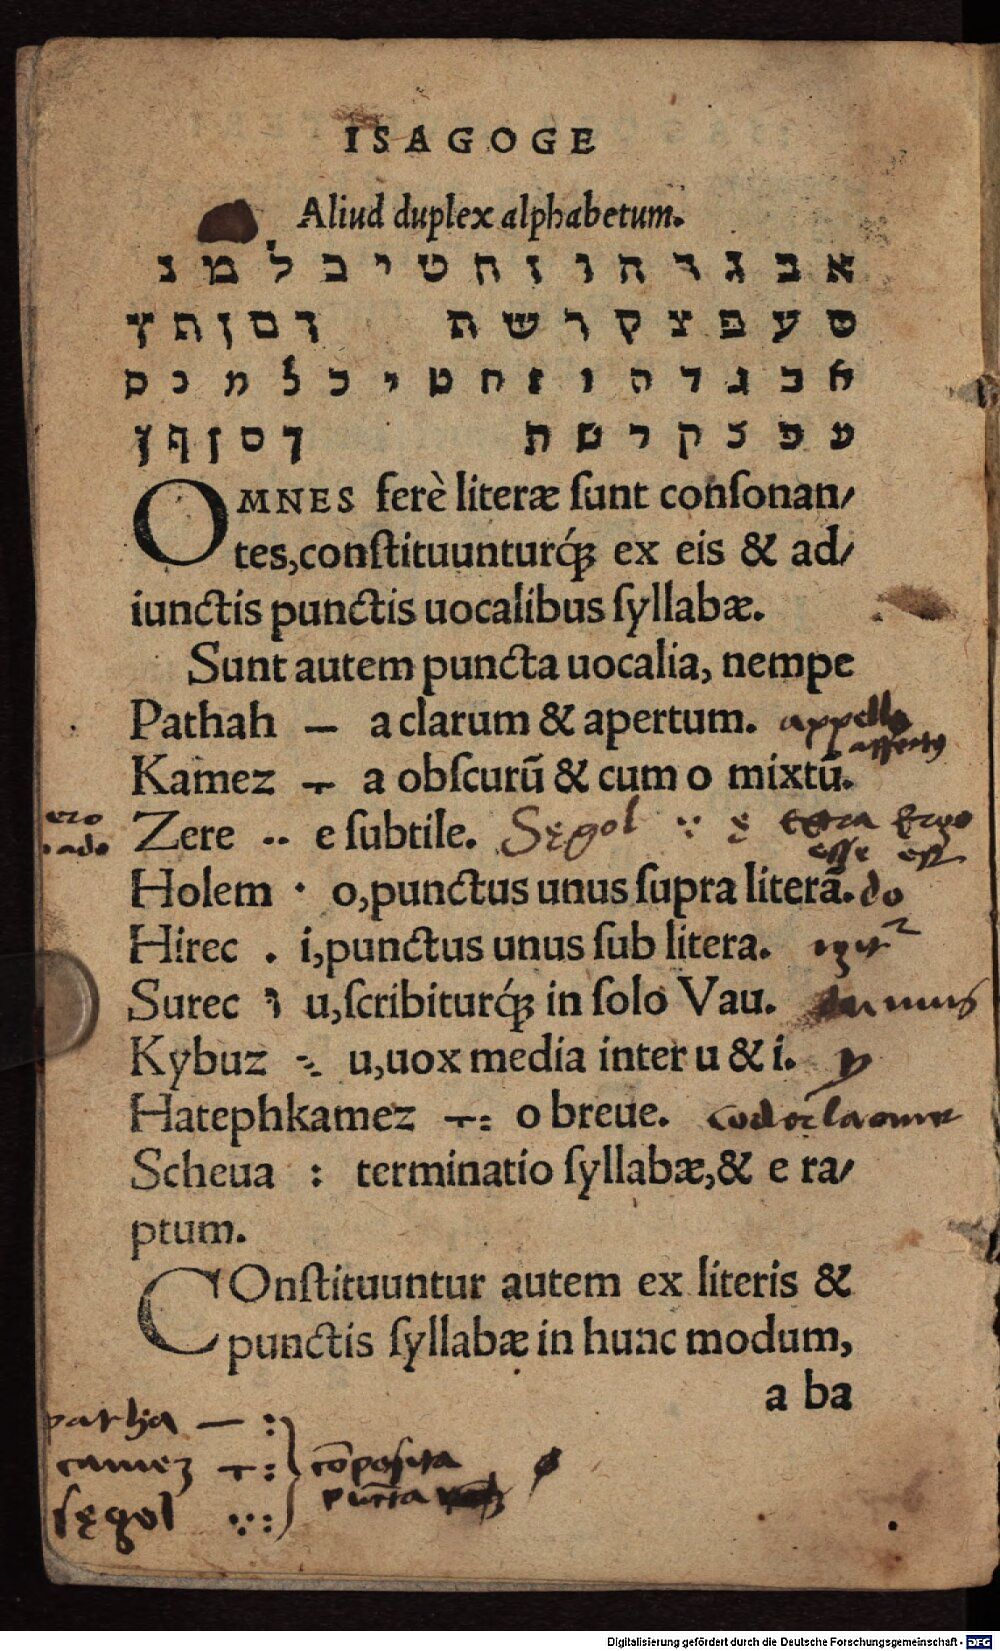 ISAGOGE
Aliud duplex alphabetum.
א ב ג ד ה ו ז ח ט י כ ל מ נ
ס ע פ צ ק ר ש ת ך ם ן ף ץ
א ב ג ד ה ו ז ח ט י כ ל מ נ ס
ע פ צ ק ר ש ת ך ם ן ף ץ
OMNES ferè literæ ſunt conſonan/
tes,conſtituunturq́ꝫ ex eis & ad/
iunctis punctis uocalibus ſyllabæ.
Sunt autem puncta uocalia, nempe
Pathah – a clarum & apertum. appello
Kamez ־ָ a obſcurũ & cum o mixtũ.
Zere .. e ſubtile. Sęgol ∵ ę
eſſe
Holem · o,punctus unus ſupra literã. do
Hirec . i,punctus unus ſub litera.
Surec וּ u,ſcribiturq́ꝫ in ſolo Vau.
Kybuz ⋱ u,uox media inter u & i. y
Hatephkamez ־ֳ o breue.
Scheua : terminatio ſyllabæ,& e ra/
ptum.
COnſtituuntur autem ex literis &
punctis ſyllabæ in hunc modum,
a ba
patha – :
camez ־ָ : cõpoſita
ſęgol ∵ : pūcta